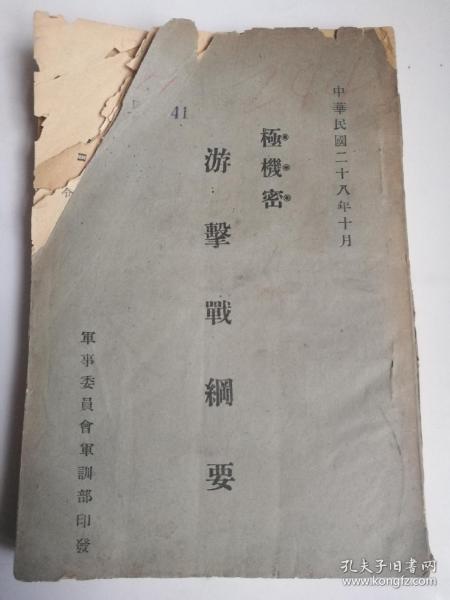 中華民國二十八年十月
極機密
游擊戰綱要
軍事委員會軍訓部印發
41
令
孔夫子旧书网
www.kongfz.com